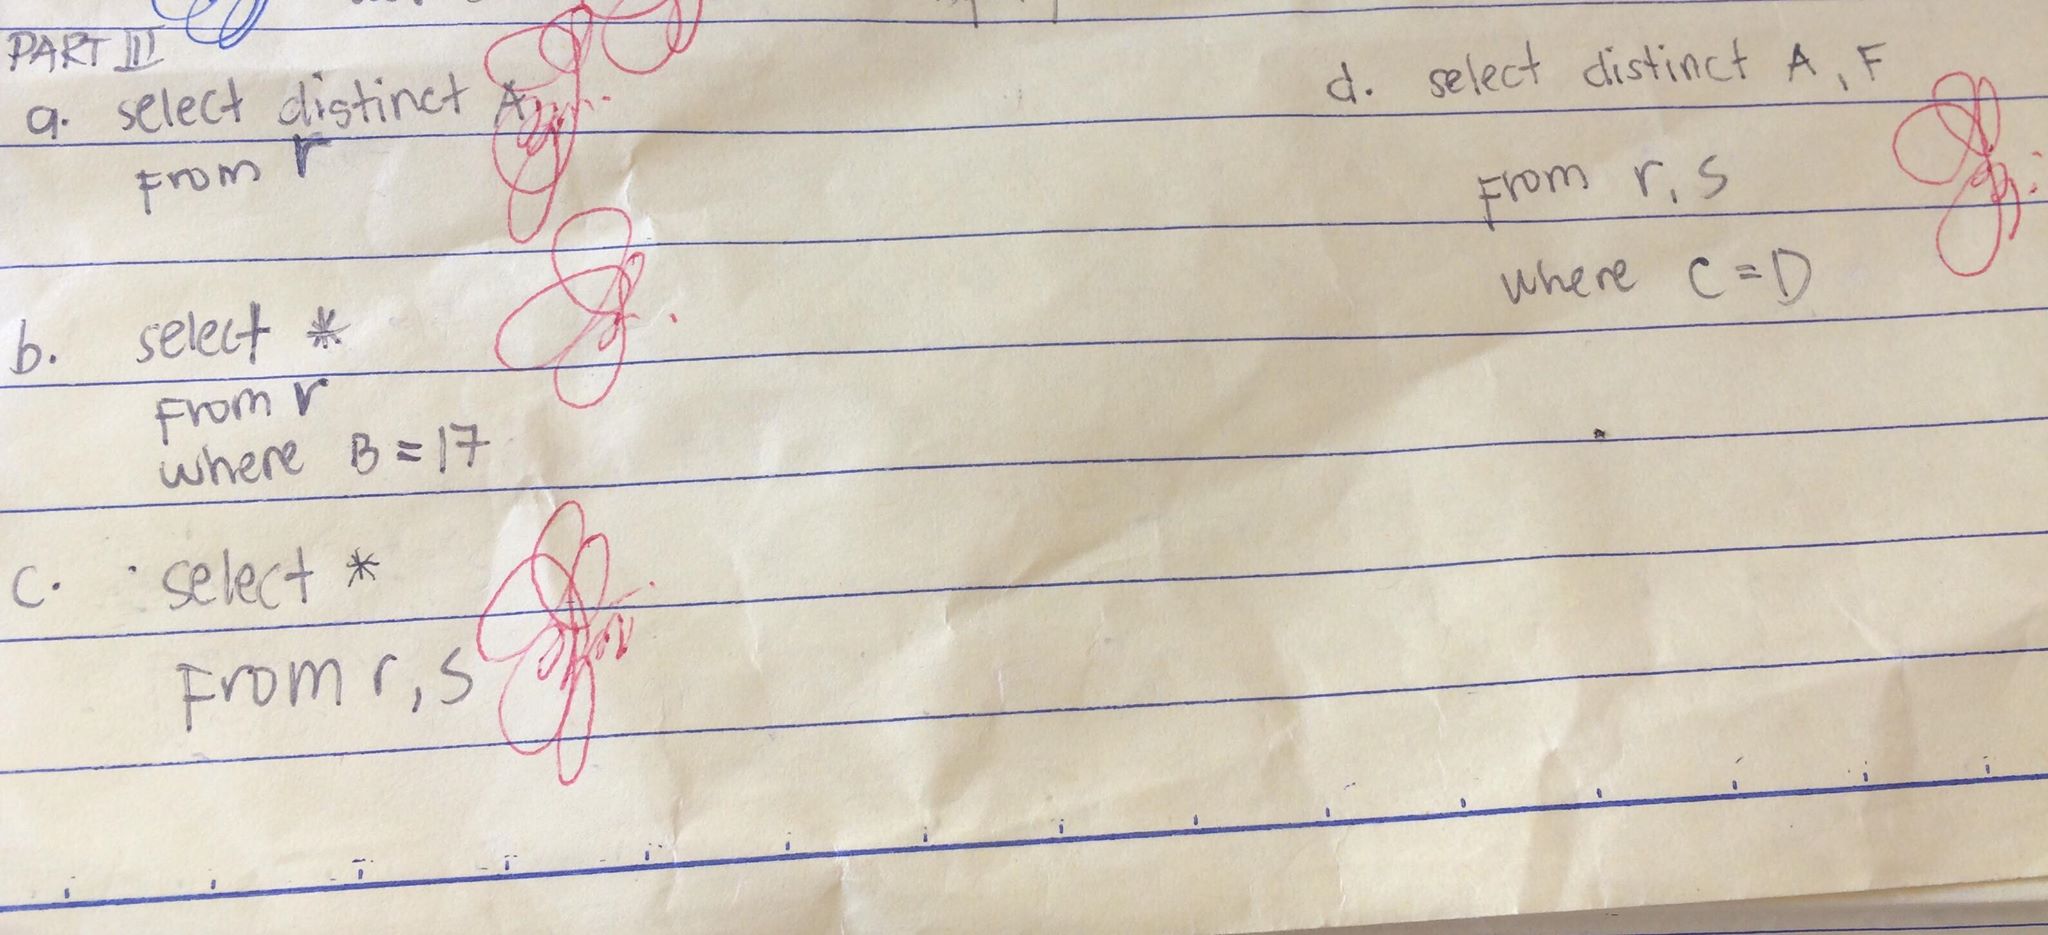 PART III
a. select distinct A
From r
b. select *
From r
where B = 17
c. select *
From r, s
d. select distinct A, F
From r, s
where C = D